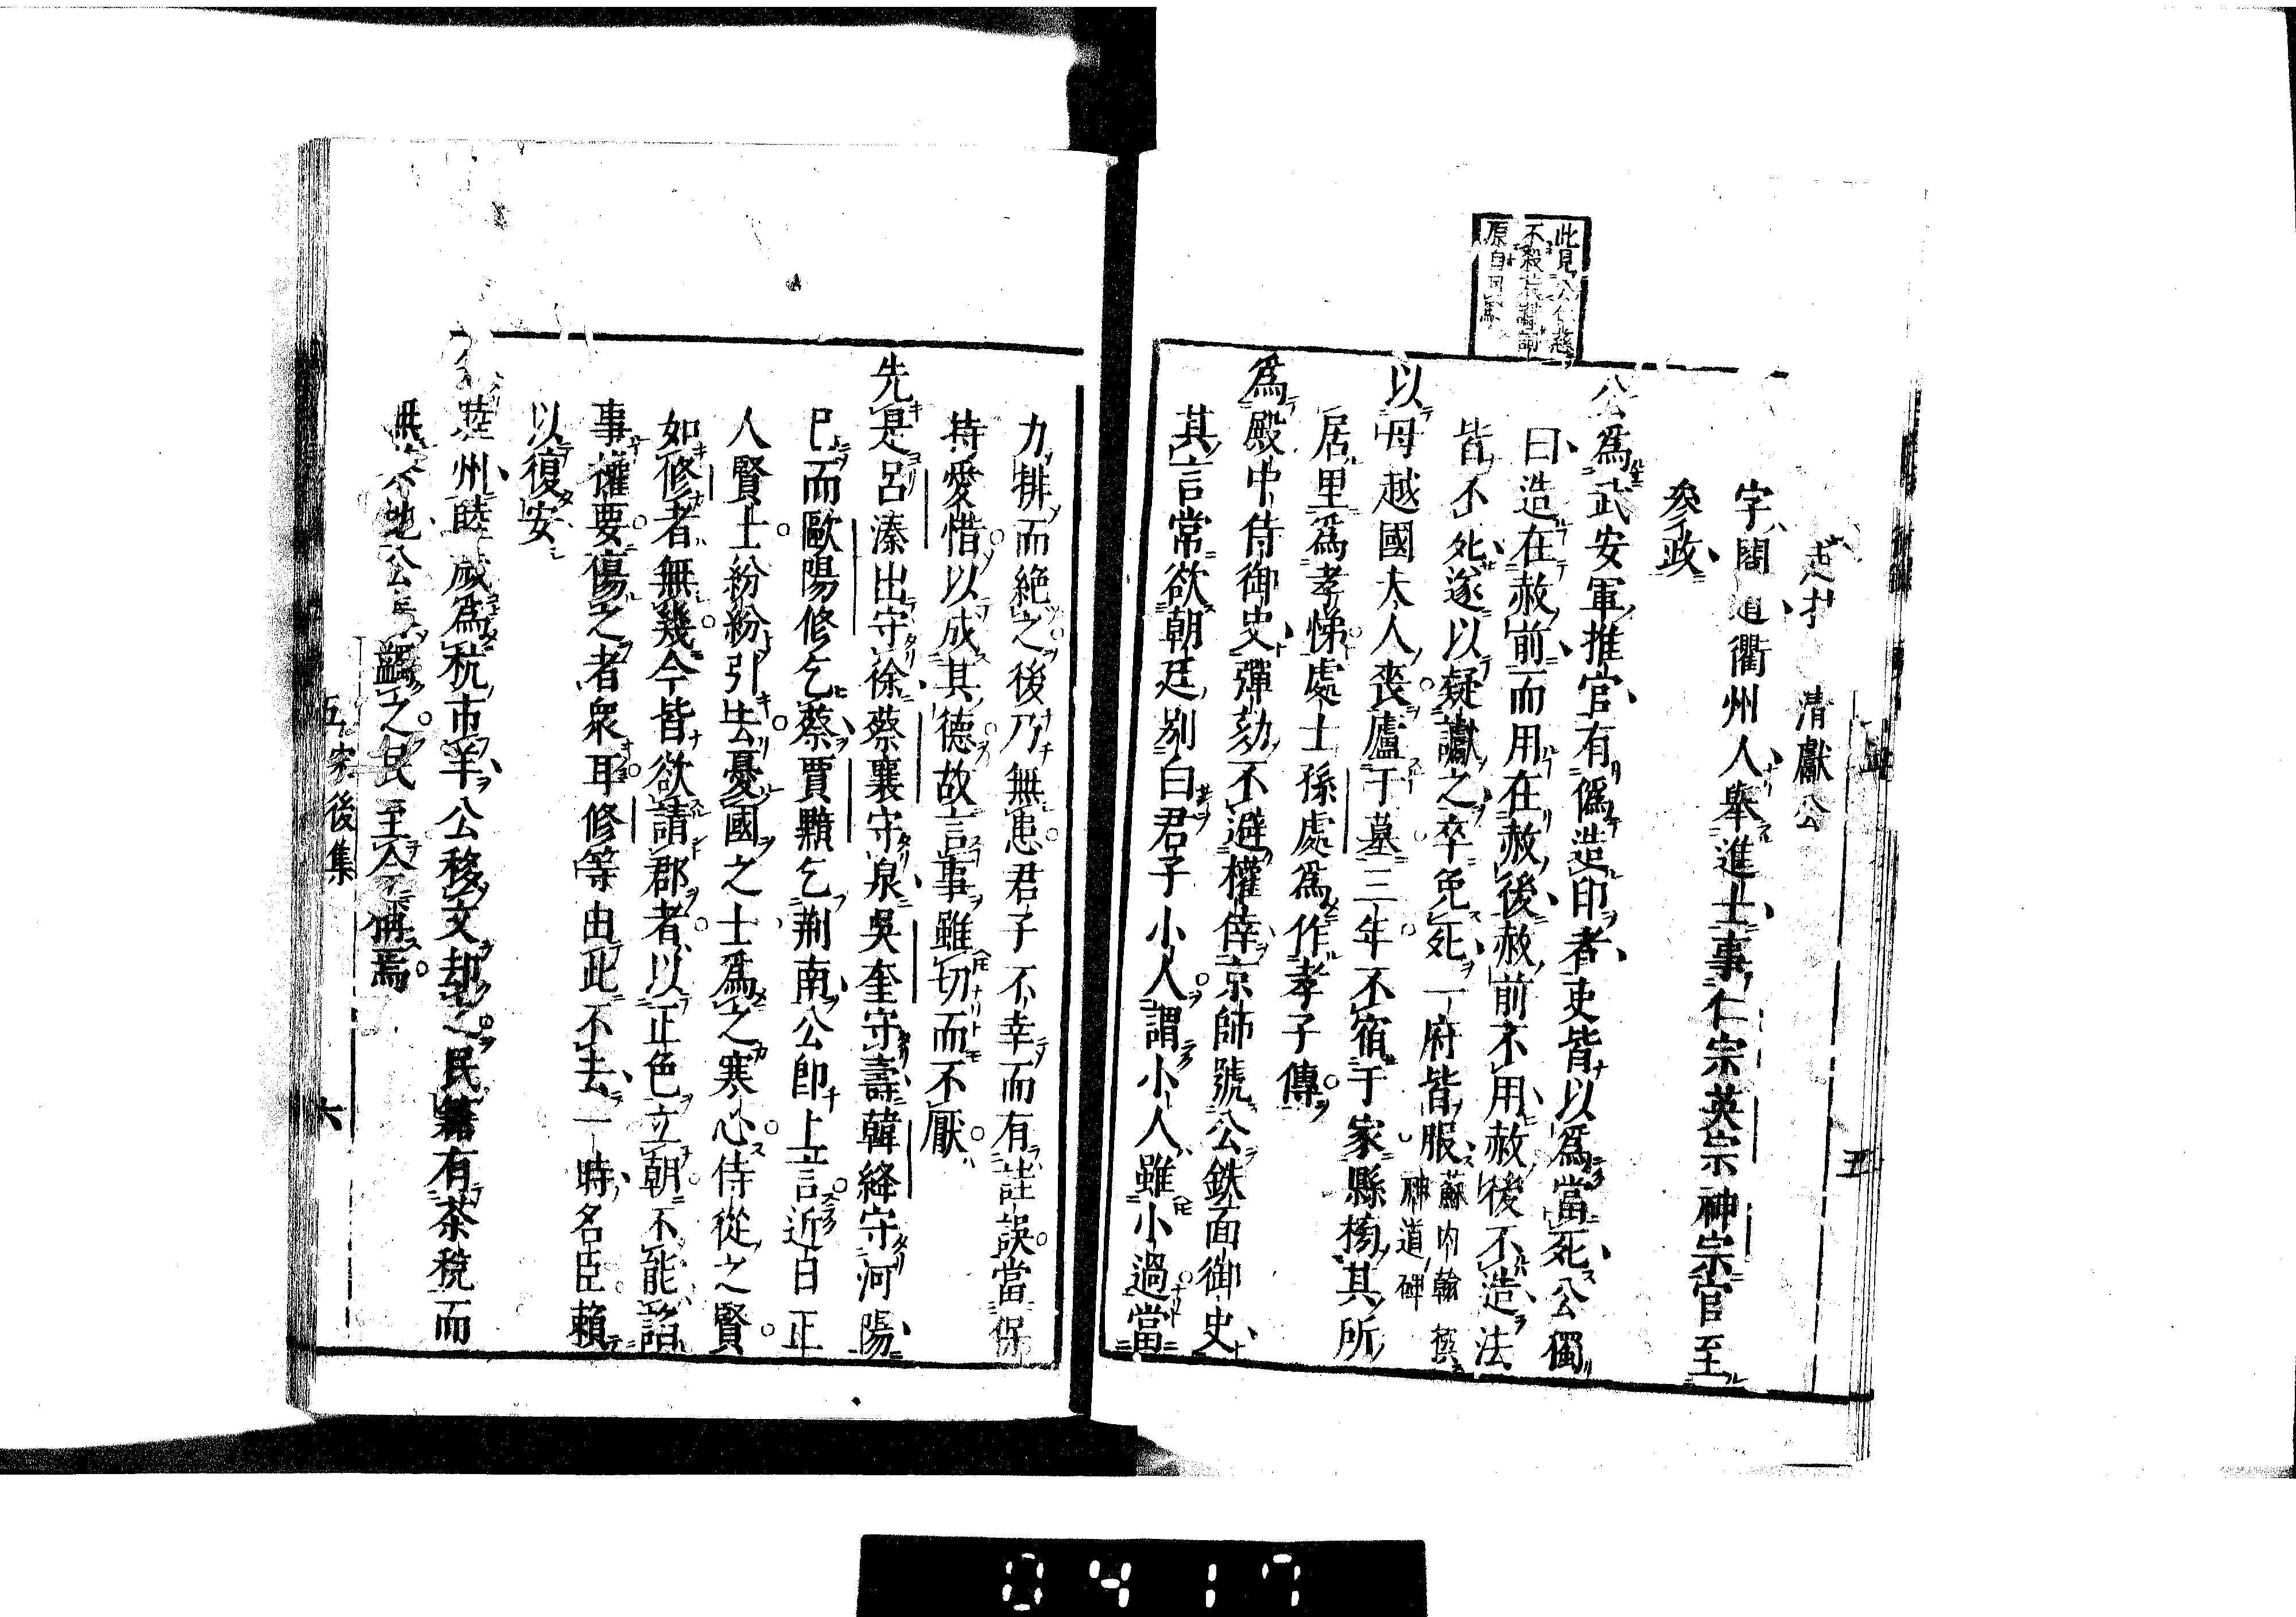 此見公仁慈
不殺
原自
清獻公
字閱道衢州人舉進士事仁宗英宗神宗官至
參政
公爲武安軍推官有僞造印者吏皆以爲當死公獨
曰造在赦前而用在赦後赦前不用赦後不造法
皆不死遂以疑讞之卒免死一府皆服
蘇內翰撰
神道碑
以母越國太人喪廬于墓三年不宿于家縣榜其所
居里爲孝悌處士孫處爲作孝子傳
爲殿中侍御史彈劾不避權倖京師號公鉄面御史
其言常欲朝廷別白君子小人謂小人雖小過當
五
力排而絶之後乃無患君子不幸而有詿誤當保
持愛惜以成其德故言事雖切而不厭
先是呂溱出守徐蔡襄守泉吳奎守壽韓絳守河陽
已而歐陽修乞蔡賈黯乞荆南公卽上言近日正
人賢士紛紛引去憂國之士爲之寒心侍從之賢
如修者無幾今皆欲請郡者以正色立朝不能諂
事權要傷之者衆耳修等由此不去一時名臣賴
以復安
睦州睦歲爲杭市羊公移文却之民籍有茶稅而
無茶地公爲蠲之民至今稱焉
五 宋後集 六
0417